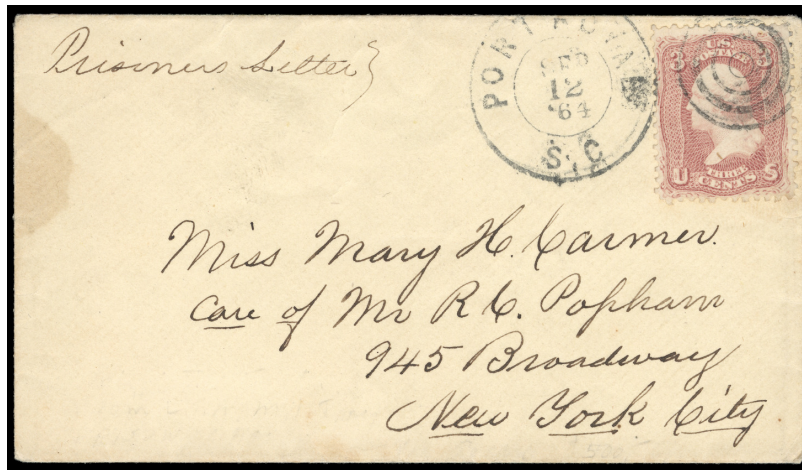 Prisoners Letter
PORT ROYAL
SEP
12
'64
S.C
3 3
U.S.
POSTAGE
THREE
CENTS
U S
Miss Mary H. Carmer.
Care of Mr R C. Popham
945 Broadway
New York City